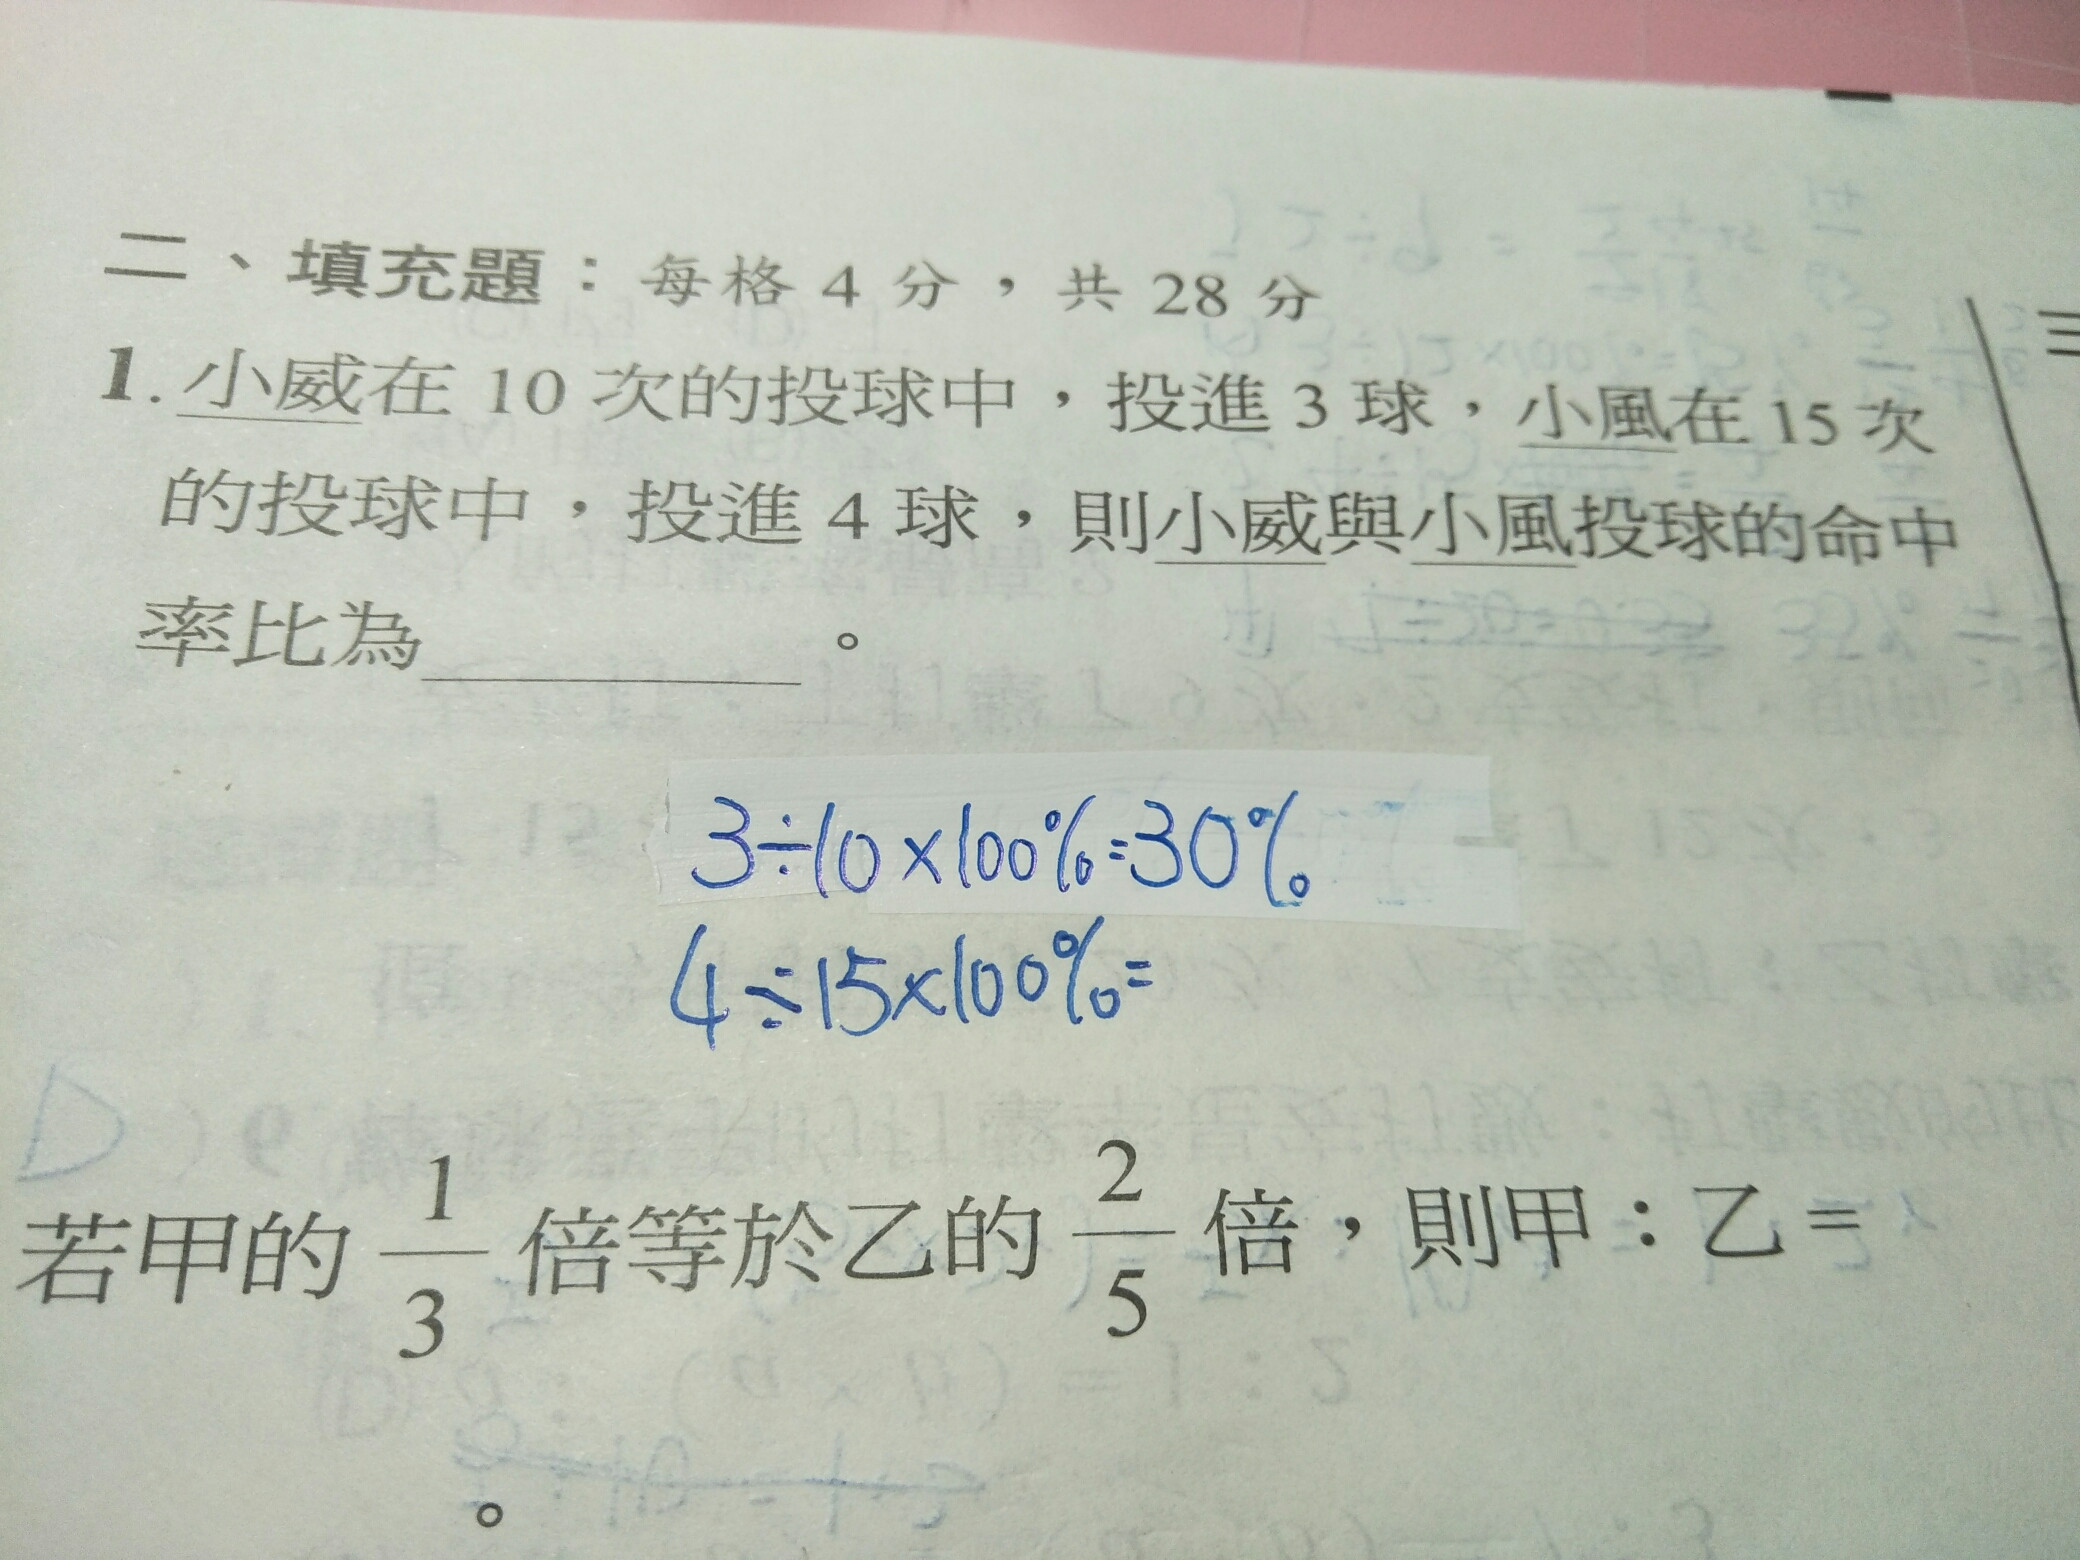 二、填充題：每格 4 分，共 28 分
1. 小威在 10 次的投球中，投進 3 球，小風在 15 次
的投球中，投進 4 球，則小威與小風投球的命中
率比為＿＿＿＿。
3÷10×100%=30%
4÷15×100%=
若甲的 1/3 倍等於乙的 2/5 倍，則甲：乙＝
。